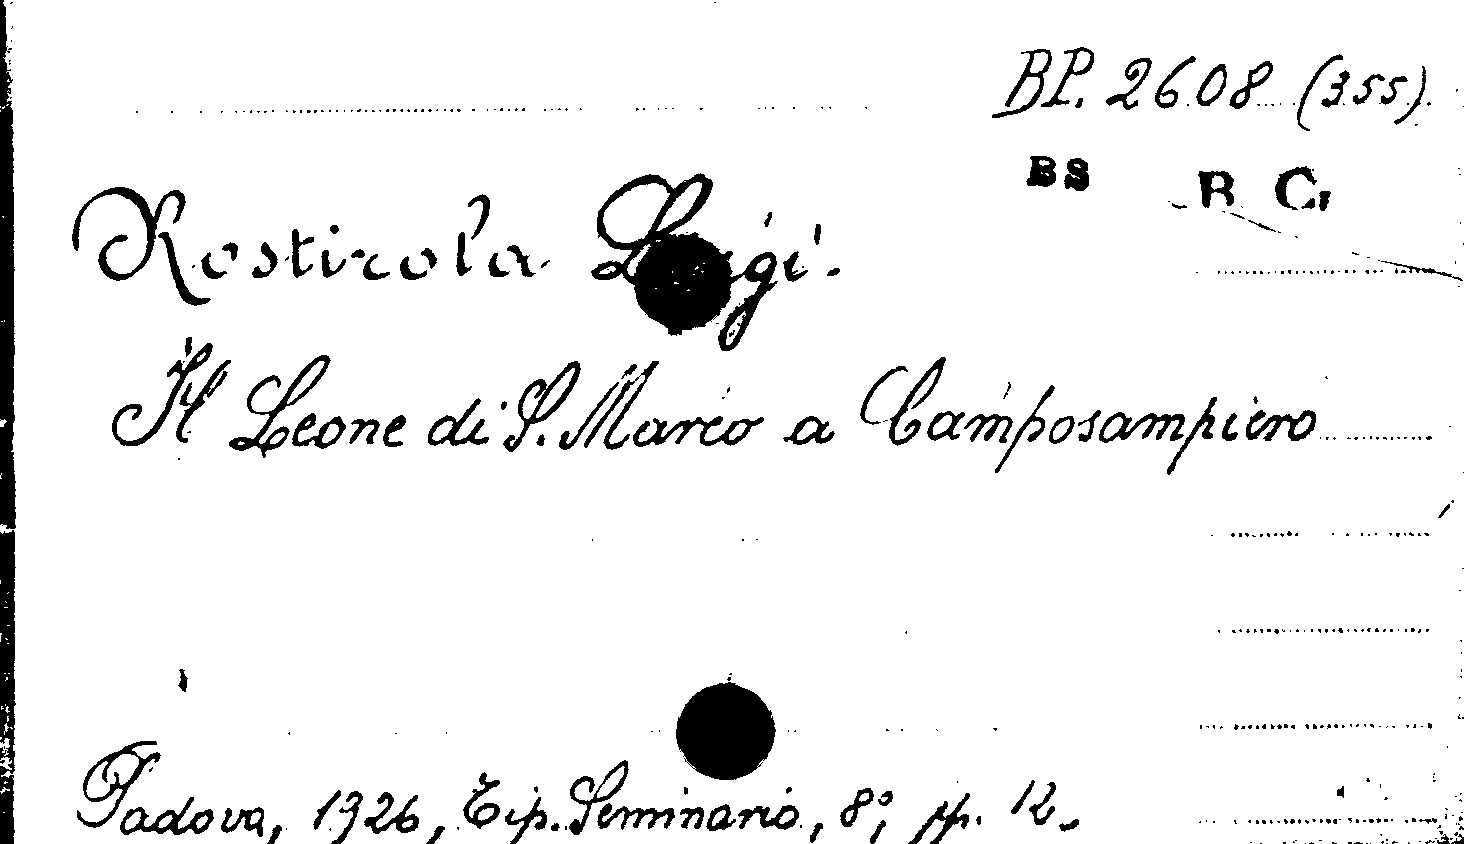 BP. 2608 (355)
BS B C
Rostirola Luigi.
Il Leone di S. Marco a Camposampiero
Padova, 1926, Tip. Seminario, 8°, pp. 12.